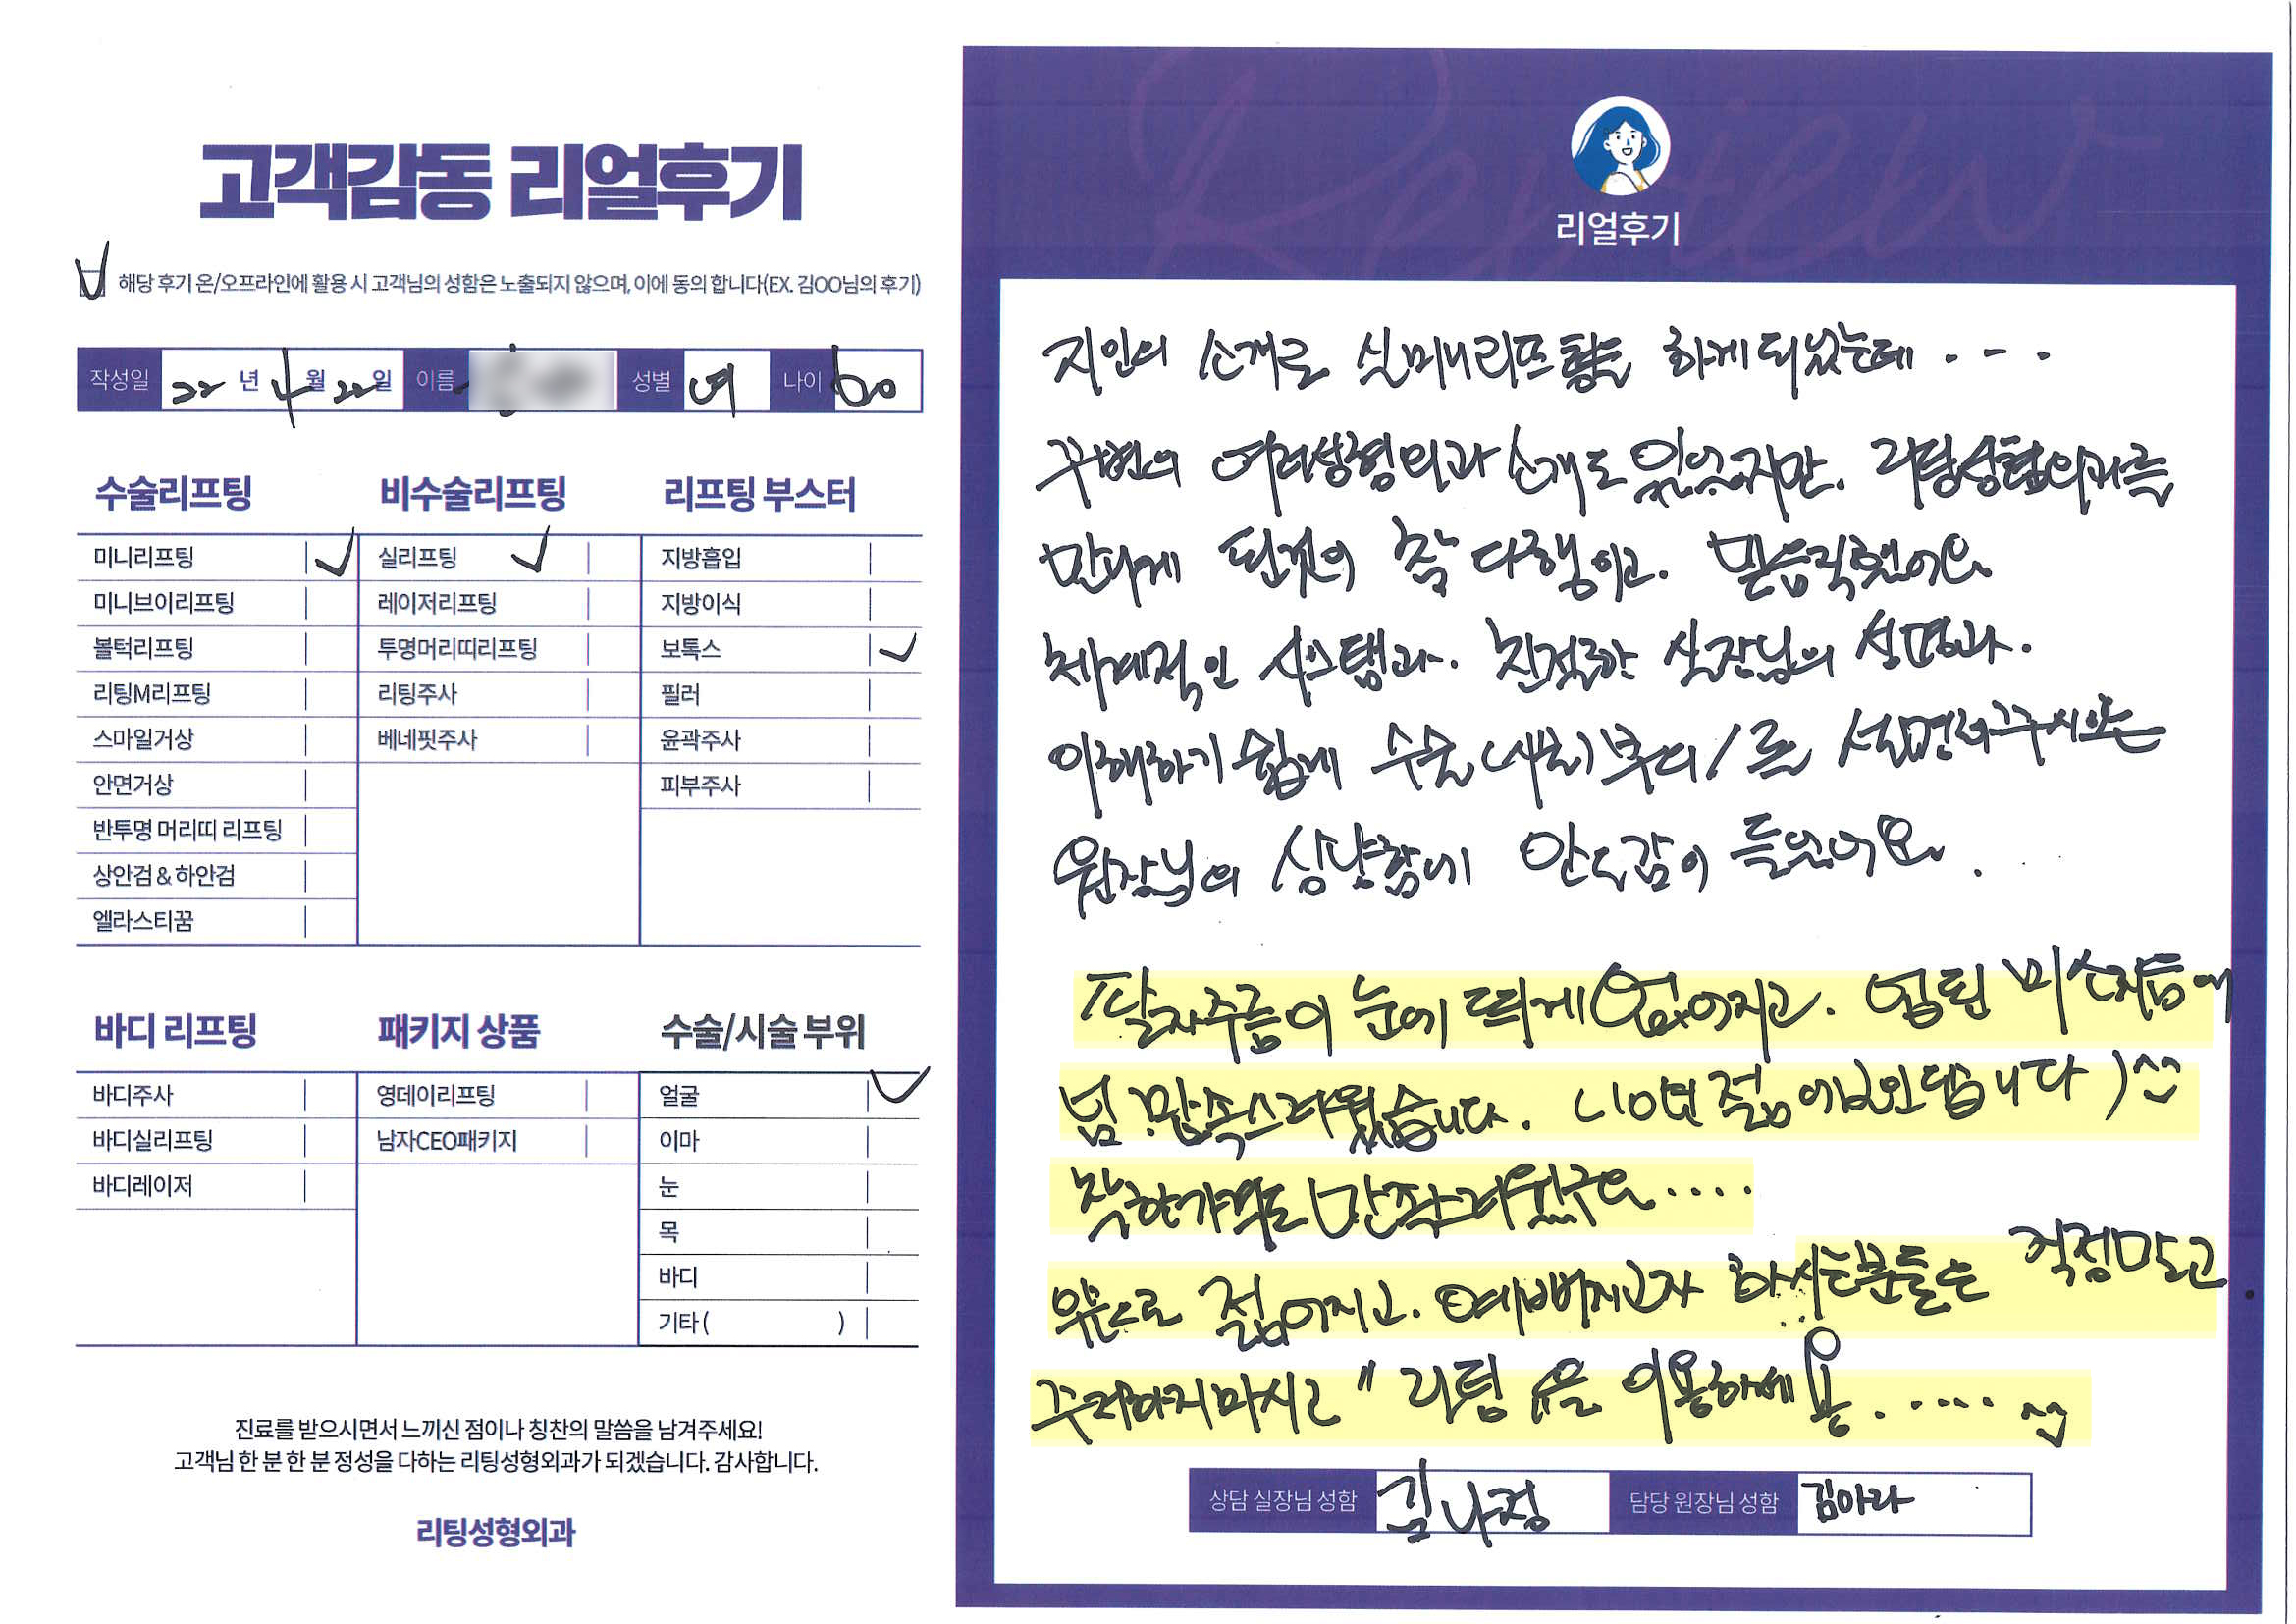 고객감동 리얼후기
해당 후기 온/오프라인에 활용 시 고객님의 성함은 노출되지 않으며, 이에 동의 합니다(EX. 김OO님의 후기)
작성일 22년 4월 22일 이름 성별 여 나이 60
수술리프팅
미니리프팅
미니브이리프팅
볼턱리프팅
리팅M리프팅
스마일거상
안면거상
반투명 머리띠 리프팅
상안검 & 하안검
엘라스티꿈
비수술리프팅
실리프팅
레이저리프팅
투명머리띠리프팅
리팅주사
베네핏주사
리프팅 부스터
지방흡입
지방이식
보톡스
필러
윤곽주사
피부주사
바디 리프팅
바디주사
바디실리프팅
바디레이저
패키지 상품
영데이리프팅
남자CEO패키지
수술/시술 부위
얼굴
이마
눈
목
바디
기타 ( )
진료를 받으시면서 느끼신 점이나 칭찬의 말씀을 남겨주세요!
고객님 한 분 한 분 정성을 다하는 리팅성형외과가 되겠습니다. 감사합니다.
리팅성형외과
Review
리얼후기
지인의 소개로 실미니리프팅을 하게되었는데 . - .
주변의 여러성형외과 소개도 있었지만. 리팅성형외과를
만나게 된것의 참 다행이고. 믿음직했어요
체계적인 시스템과. 친절한 실장님의 설명과.
이해하기 쉽게 수술 설명해주시는
원장님의 상냥함에 안도감이 들었어요.
팔자주름이 눈에 띄게 없어지고. 미소
넘 만족스러웠습니다. 10년 젊
착한가격도 만족스러웠구요....
앞으로 젊어지고. 예뻐지고자 하시는분들은 걱정말고
주저하지마시고 " 리팅 을 이용하세용...... ^^
상담 실장님 성함 김나정 담당 원장님 성함 김아라